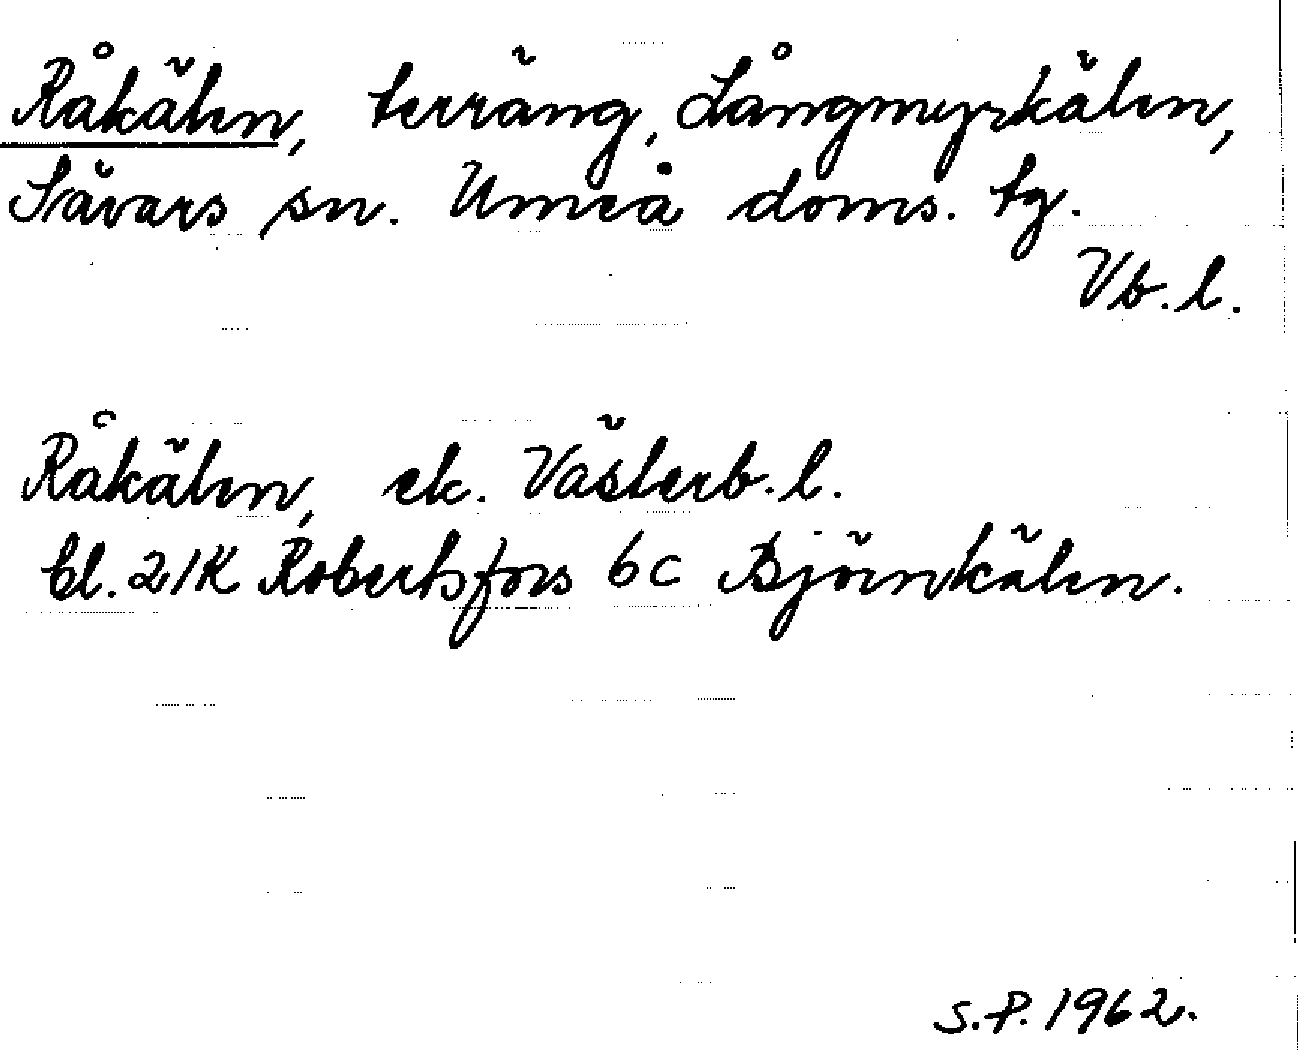 Råkälen, terräng, Långmyrkälen,
Sävars sn. Umeå doms. tg.
Vb. l.
Råkälen, ek. Västerb. l.
bl. 21K Robertsfors 6c Björnkälen.
S.P. 1962.